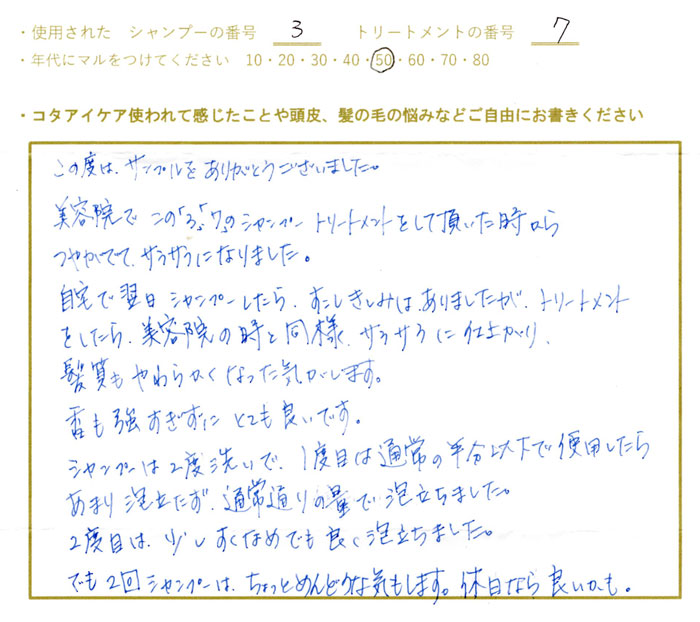 ・使用された　シャンプーの番号　3　トリートメントの番号　7
・年代にマルをつけてください　10・20・30・40・50・60・70・80
・コタアイケア使われて感じたことや頭皮、髪の毛の悩みなどご自由にお書きください
この度は、サンプルをありがとうございました。
美容院でこの「3」「7」のシャンプートリートメントをして頂いた時から
つやがでて、サラサラになりました。
自宅で翌日シャンプーしたら、すこしきしみはありましたが、トリートメント
をしたら、美容院の時と同様、サラサラに仕上がり、
髪質もやわらかくなった気がします。
香も強すぎずにとても良いです。
シャンプーは2度洗いで、1度目は通常の半分以下で使用したら
あまり泡立たず、通常通りの量で泡立ちました。
2度目は、少しすくなめでも良く泡立ちました。
でも2回シャンプーは、ちょっとめんどうな気もします。休日なら良いかも。